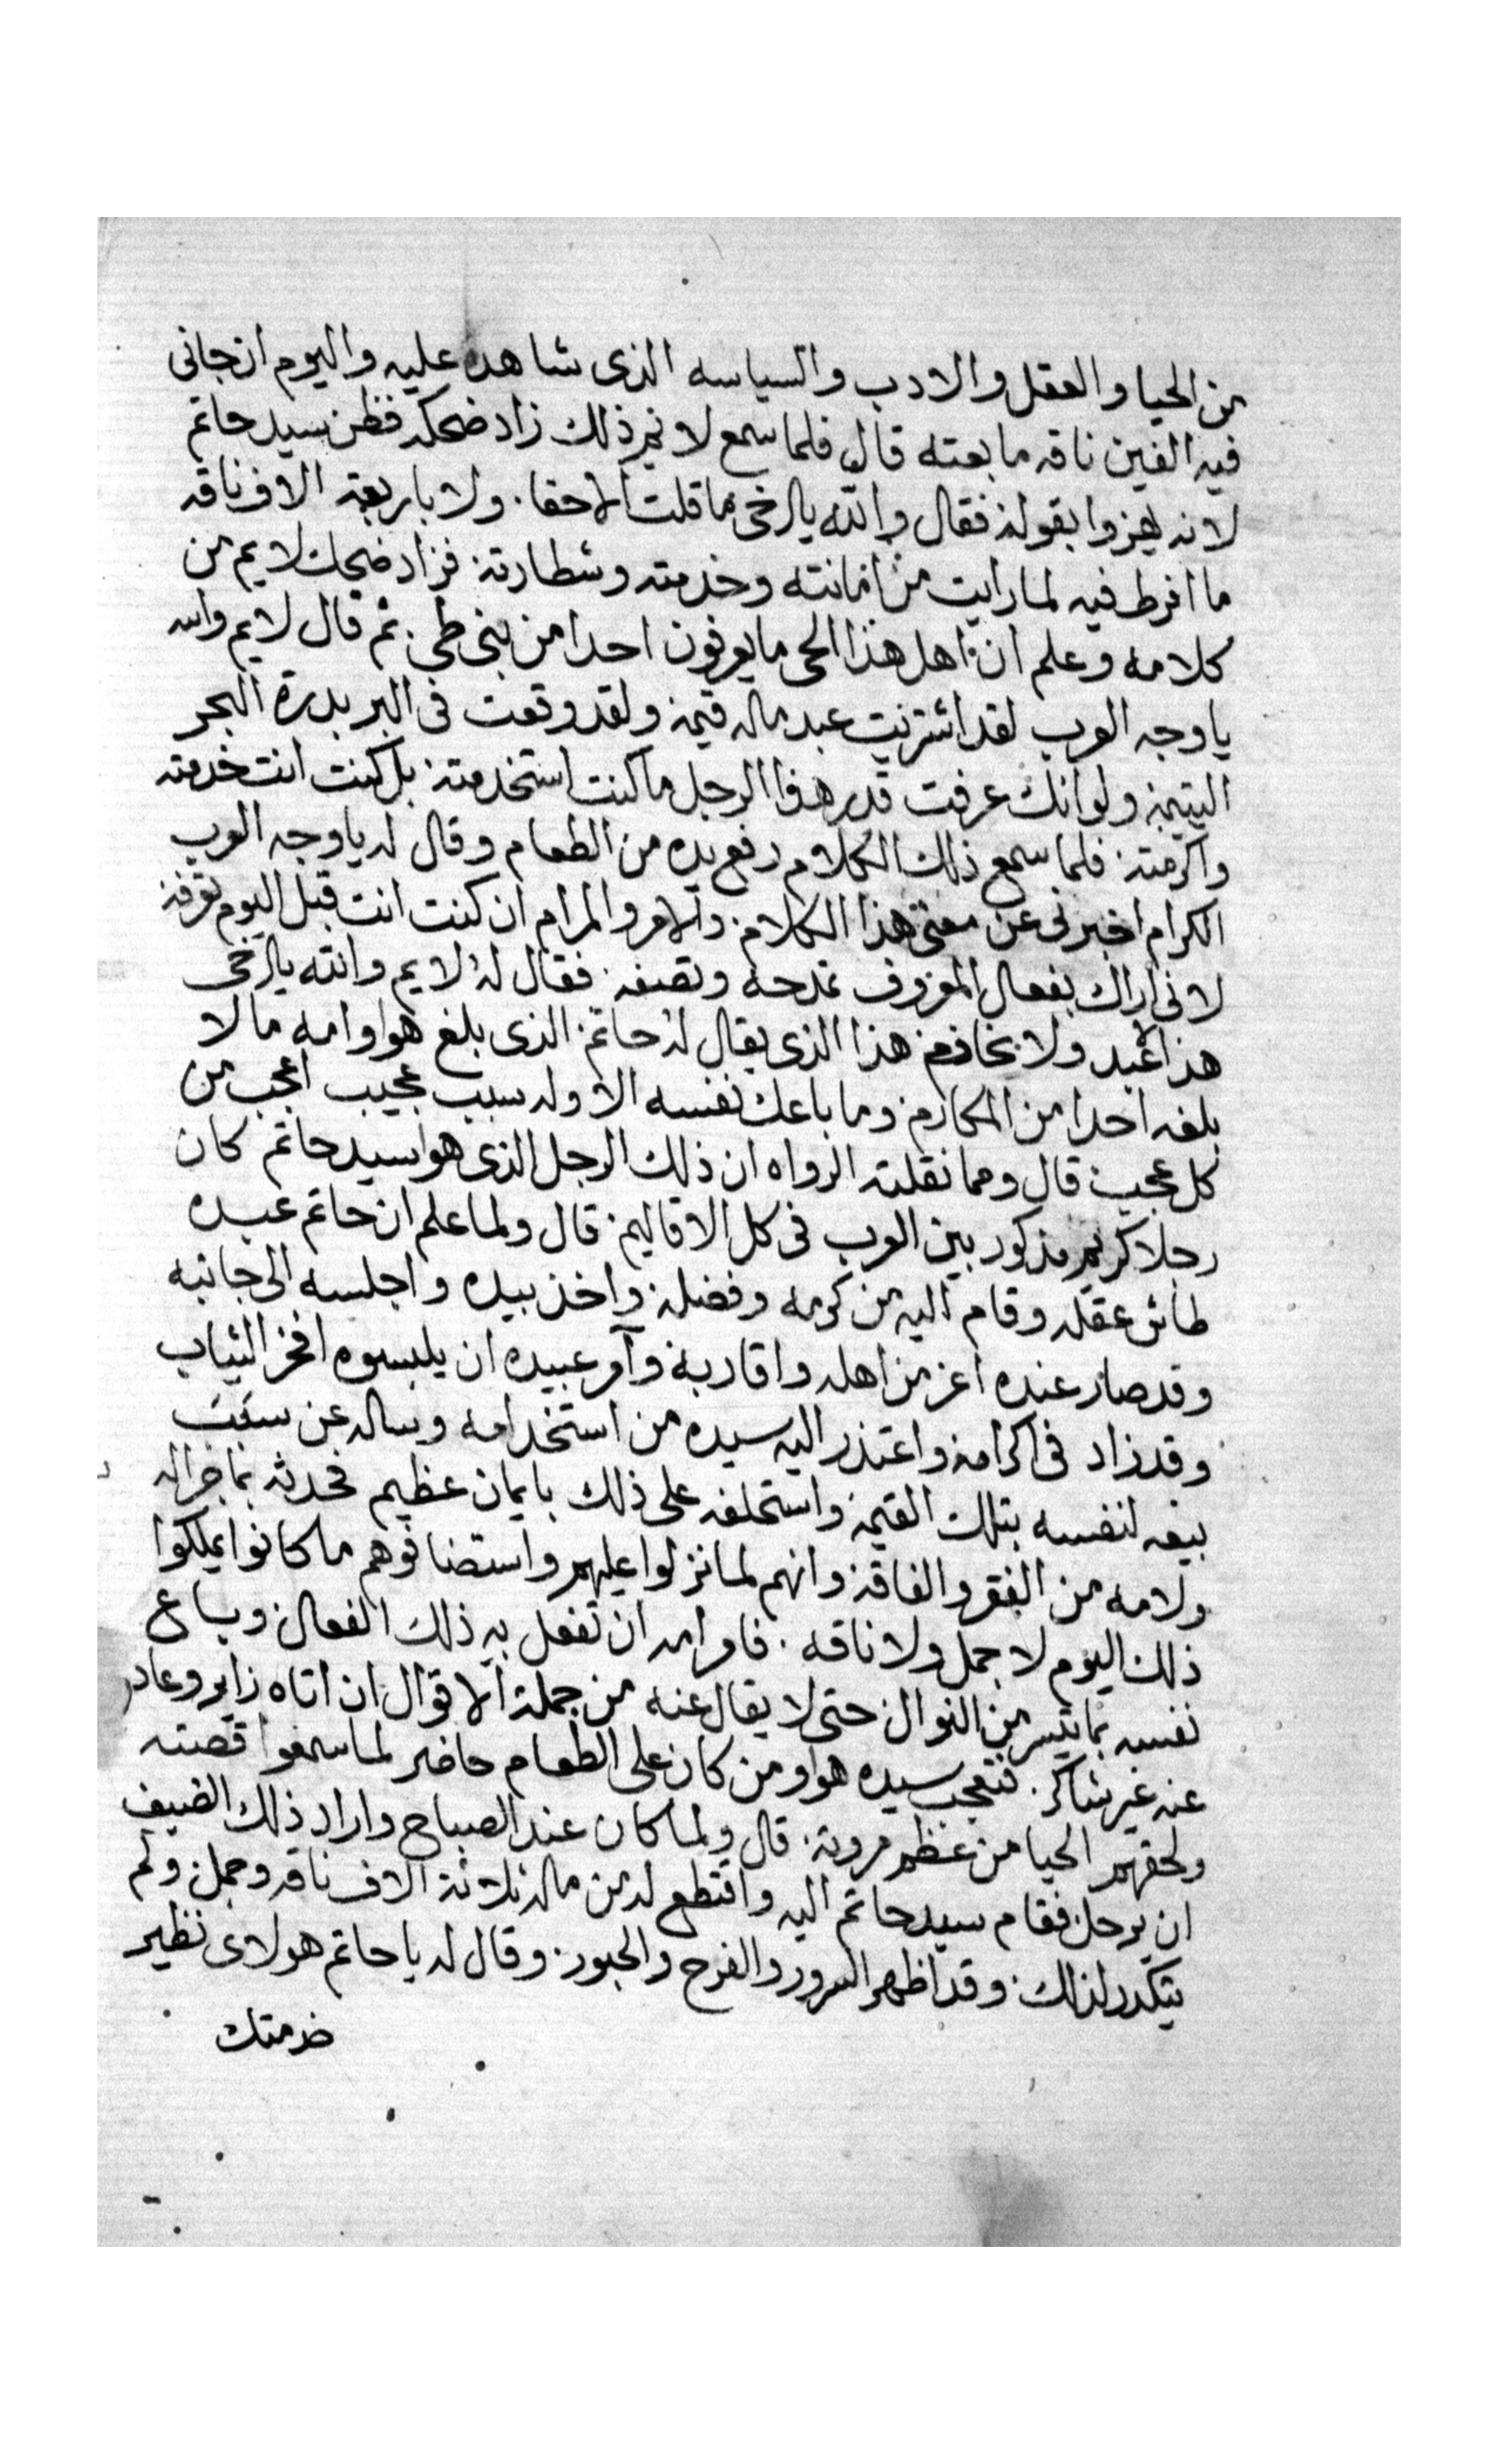 من الحيا والعقل والادب والسياسه الذى شاهده عليه واليوم ان جانى
فيه الفين ناقه ما بعته قال فلما سمع لايم ذلك زاد ضحكه فظن سيد حاتم
لانه يهزوا بقوله فقال والله يا اخى ما قلت الا حقا. ولا باربعة الاف ناقه
ما افرط فيه لما رايت من امانته وخدمته وشطارته فزاد ضحك لايم من
كلامه وعلم ان اهل هذا الحى ما يعرفون احدا من بنى طى. ثم قال لايم والله
يا وجه العرب لقد اشتريت عبد ماله قيمة ولقد وقعت فى البر بدرة البحر
اليتيمة ولو انك عرفت قدر هذا الرجل ما كنت استخدمته بل كنت انت خدمته
واكرمته فلما سمع ذلك الكلام رفع يده من الطعام وقال له يا وجه العرب
الكرام اخبرنى عن معنى هذا الكلام والامر والمرام ان كنت انت قبل اليوم تعرفه
لانى اراك بفعال المعروف تمدحه وتصفه فقال له لايم والله يا اخى
هذا عبد ولا هذا الذى يقال له حاتم الذى بلغ هو وامه ما لا
بلغه احدا من المكارم وما باعك نفسه الا وله سبب عجيب اعجب من
كل عجيب قال ومما نقلته الرواه ان ذلك الرجل الذى هو سيد حاتم كان
رجلا كريم مذكور بين العرب فى كل الاقاليم قال ولما علم ان حاتم عبده
طاش عقله وقام اليه من كرمه وفضله واخذ بيده واجلسه الى جانبه
وقد صار عنده اعز من اهله واقاربة وآمر عبيده ان يلبسوه افخر الثياب
وقد زاد فى اكرامه واعتذر اليه سيده من استخدامه وساله عن سبب
بيعه لنفسه بتلك القيمة واستحلفه على ذلك بايمان عظيم فحدثه بما جرا له
ولامه من الفقر والفاقة وانهم لما نزلوا عليهم واستضافوهم ما كانوا يملكوا
ذلك اليوم لا جمل ولا ناقه. فامر امه ان تفعل به ذلك الفعال ويباع
نفسه بما تيسر من النوال حتى لا يقال عنه من جملة الاقوال ان اتاه زاير وعاد
عنه غير شاكر. فتعجب سيده هو ومن كان على الطعام حاضر لما سمعوا قصته
ولحقهم الحيا من عظم مروته. قال ولما كان عند الصباح واراد ذلك الضيف
ان يرحل فقام سيد حاتم اليه واقتطع له من ماله ثلاثة الاف ناقه وجمل ولم
يتكدر لذلك وقد اظهر السرور والفرح والحبور. وقال له يا حاتم هولاى نظير
خدمتك